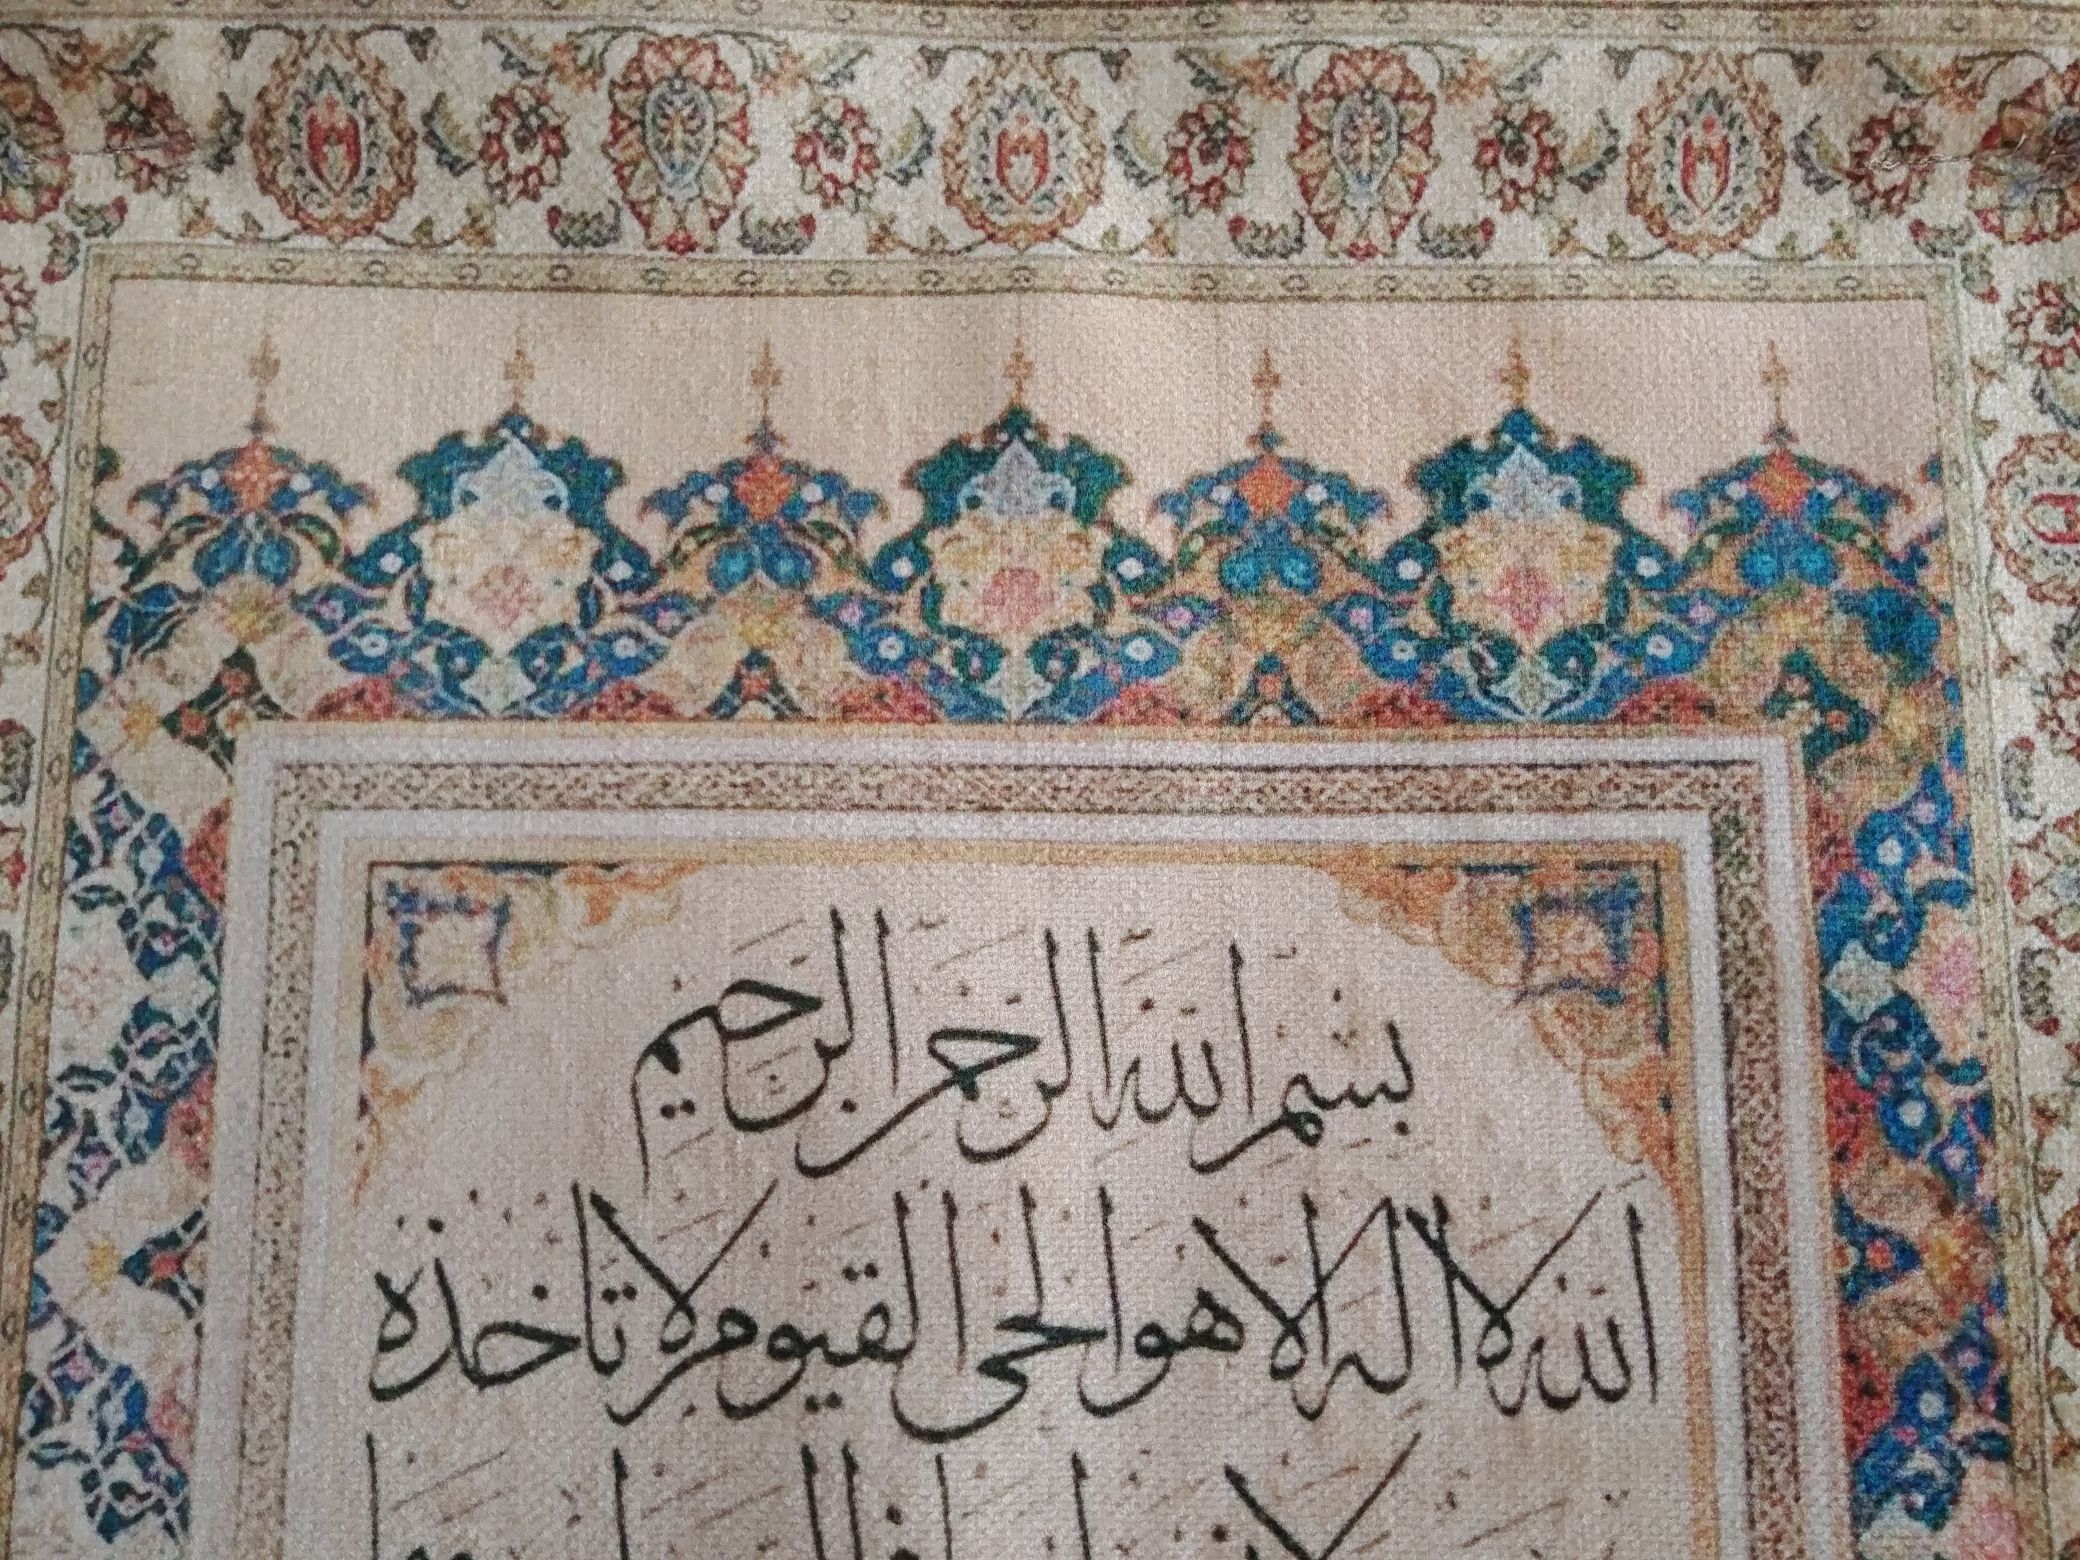 بسم الله الرحمن الرحیم
الله لا اله الا هو الحی القیوم لا تأخذه